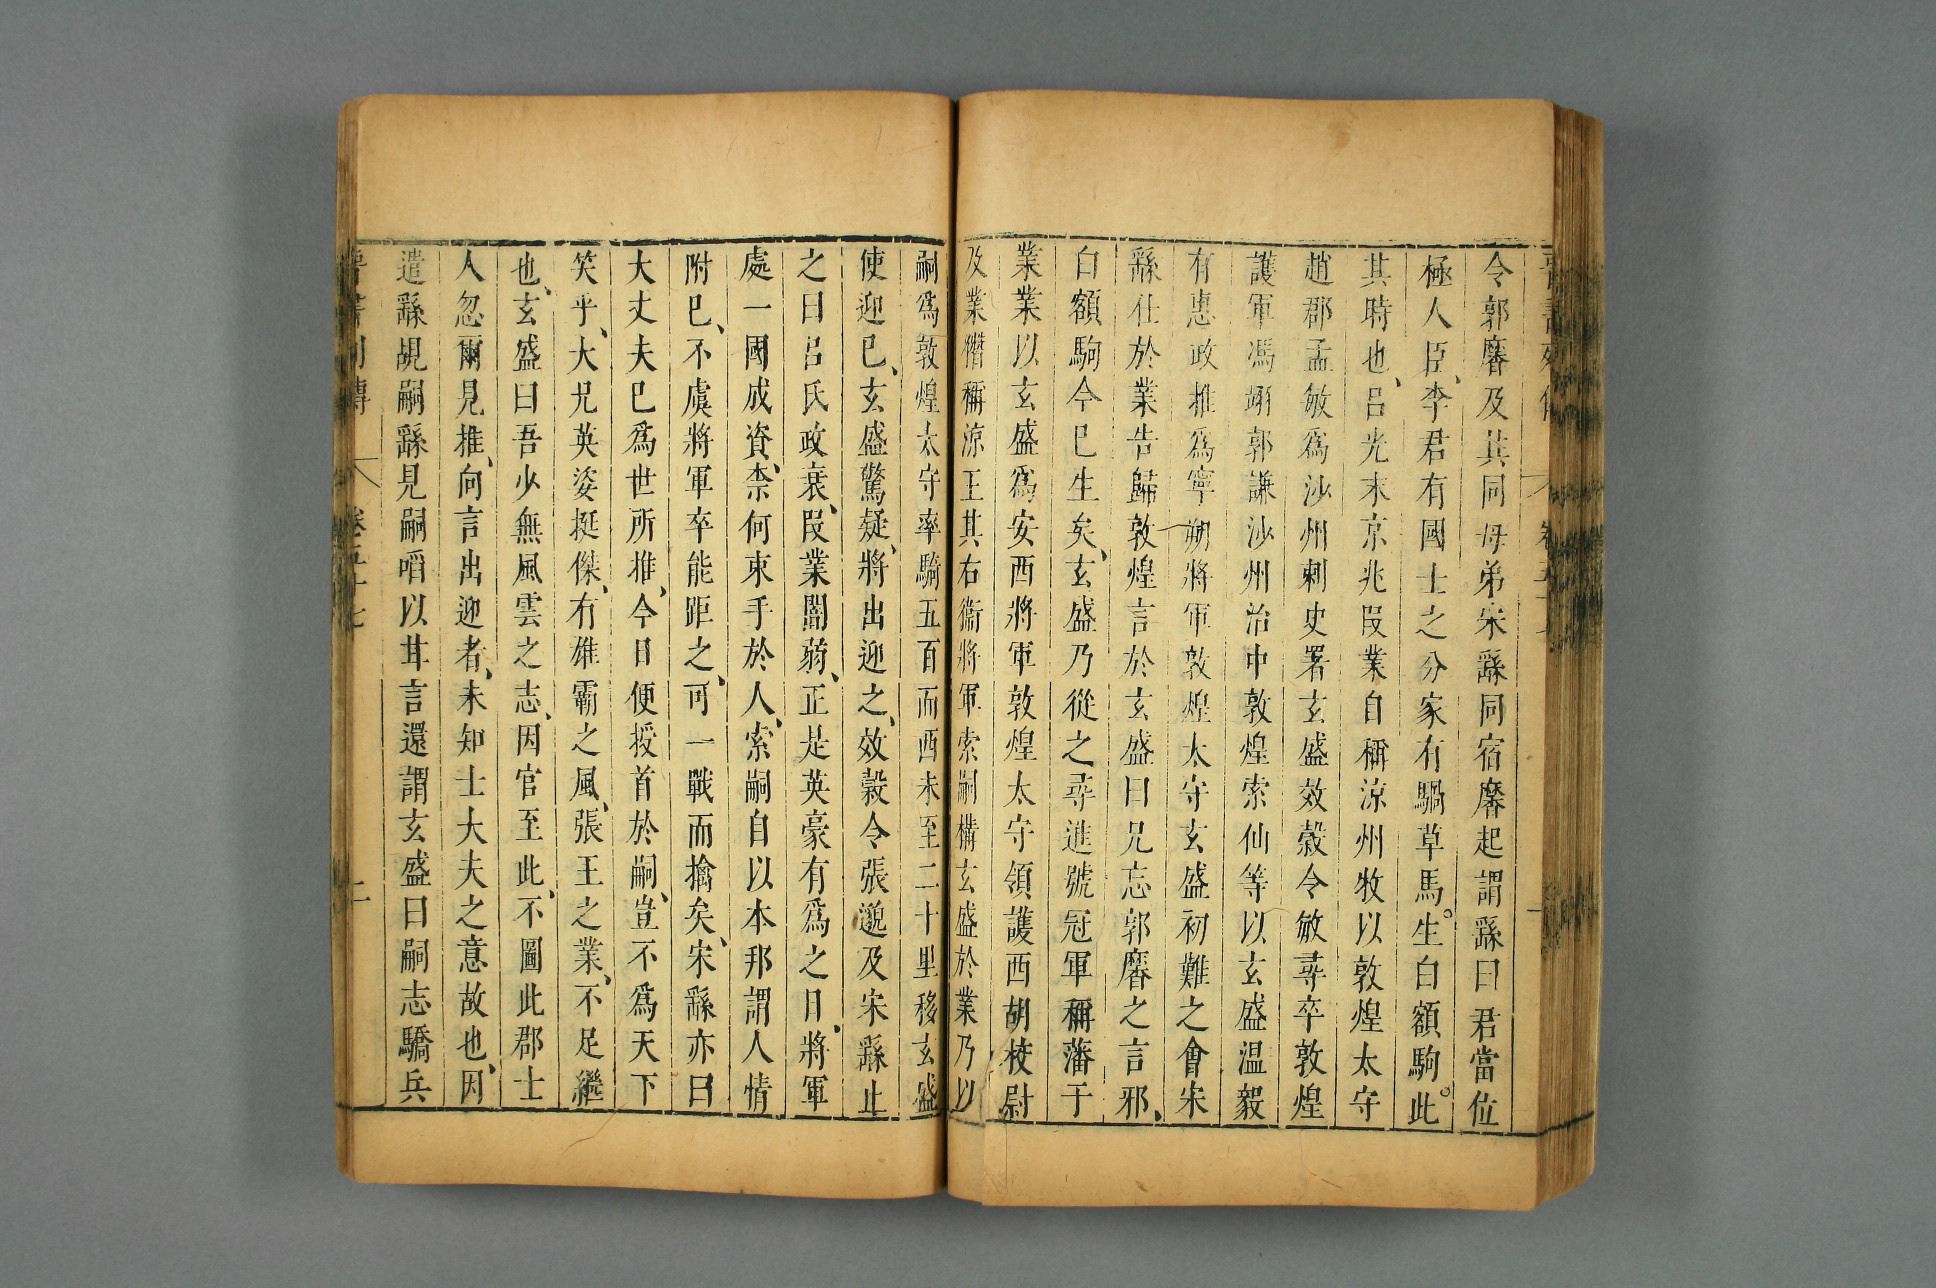 令郭黁及其同母弟宋繇同宿黁起謂繇曰君當位
極人臣、李君有國士之分家有騧草馬。生白額駒。此
其時也、呂光末京兆段業自稱涼州牧以敦煌太守
趙郡孟敏爲沙州刺史署玄盛效穀令敏尋卒敦煌
護軍馮翊郭謙沙州治中敦煌索仙等以玄盛温毅
有惠政推爲寧朔將軍敦煌太守玄盛初難之會宋
繇仕於業告歸敦煌言於玄盛曰兄忘郭黁之言邪、
白額駒今巳生矣、玄盛乃從之尋進號冠軍稱藩于
業業以玄盛爲安西將軍敦煌太守領護西胡校尉
及業僭稱涼王其右衞將軍索嗣構玄盛於業乃以
嗣爲敦煌太守率騎五百而西未至二十里移玄盛
使迎巳、玄盛驚疑、將出迎之、效穀令張邈及宋繇止
之曰呂氏政衰、段業闇弱、正是英豪有爲之日、將軍
處一國成資、柰何束手於人、索嗣自以本邦謂人情
附巳、不虞將軍卒能距之、可一戰而擒矣、宋繇亦曰
大丈夫巳爲世所推、今日便授首於嗣、豈不爲天下
笑乎、大兄英姿挺傑、有雄霸之風、張王之業、不足繼
也、玄盛曰吾少無風雲之志、因官至此、不圖此郡士
人忽爾見推、向言出迎者、未知士大夫之意故也、因
遣繇覘嗣繇見嗣啗以甘言還謂玄盛曰嗣志驕兵
晉書列傳 卷五十七 二